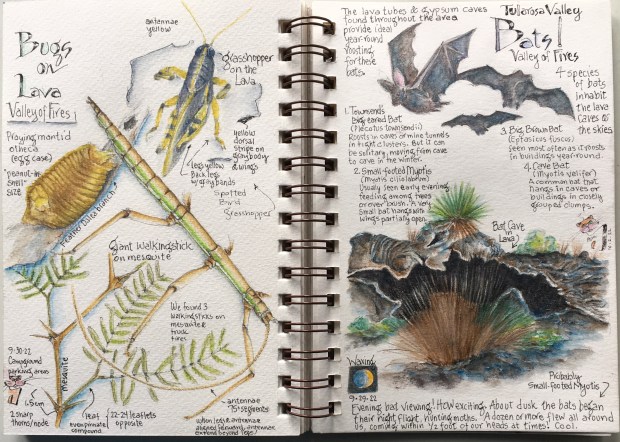 Bugs
on
Lava
Valley of Fires
antennae
yellow
grasshopper
on the
Lava
yellow
dorsal
stripe on
gray body
& wings
legs yellow
Back legs
w/ gray bands
Spotted
Bird
Grasshopper
Praying mantid
otheca
(egg case)
peanut-in-
shell
size
Feather Dalea branch
Giant Walkingstick
on mesquite
We found 3
walkingsticks on
mesquite &
truck
tires
9-30-22
Campground
parking areas
Mesquite
1.5cm
2 sharp
thorns/node
leaf
even pinnate
compound
22-24 leaflets
opposite
antennae
75+ segments
when legs & antennae
aligned forward, antennae
extend beyond legs
The lava tubes & gypsum caves
found throughout the area
provide ideal
year-round
roosting
for these
bats.
Tularosa Valley
Bats!
Valley of Fires
4 species
of bats
inhabit
the lava
caves &
the skies
1. Townsends
Big-eared Bat
(Plecotus townsendii)
Roosts in caves or mine tunnels
in tight clusters. But it can
be solitary, moving from cave
to cave in the winter.
2. Small-footed Myotis
(Myotis ciliolabrum)
Usually seen early evening
feeding among trees
or over brush. A very
small bat hangs with
wings partially open.
3. Big Brown Bat
(Eptesicus fuscus)
seen most often as it roosts
in buildings year-round.
4. Cave Bat
(Myotis velifer)
A common bat that
hangs in caves or
buildings in closely
grouped clumps.
Bat Cave
in
Lava
Waxing
9-29-22
Probably
Small-footed Myotis
Evening bat viewing! How exciting. About dusk the bats began
their night flight, hunting moths. A dozen or more flew all around
us, coming within 1/2 foot of our heads at times! Cool.